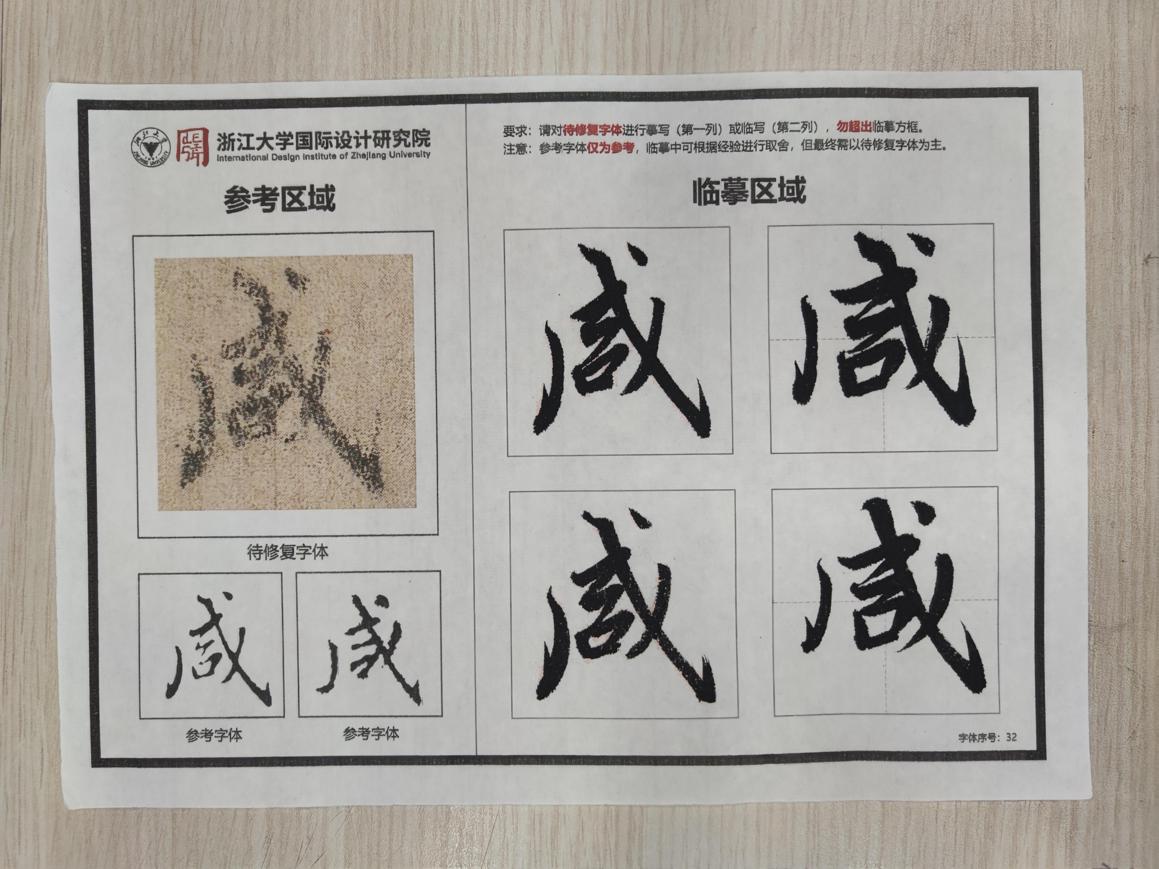 浙江大学国际设计研究院
International Design Institute of Zhejiang University
参考区域
咸
待修复字体
咸
咸
参考字体
参考字体
要求：请对待修复字体进行摹写（第一列）或临写（第二列），勿超出临摹方框。
注意：参考字体仅为参考，临摹中可根据经验进行取舍，但最终需以待修复字体为主。
临摹区域
咸
咸
咸
咸
字体序号：32